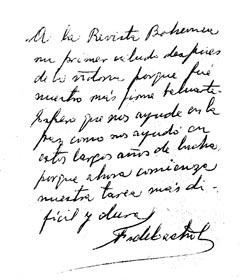 A la Revista Bohemia
mi primer saludo despues
de la victoria porque fué
nuestro más firme baluarte.
Espero que nos ayude en la
paz como nos ayudó en
estos largos años de lucha
porque ahora comienza
nuestra tarea más di-
ficil y dura.
Fidel Castro